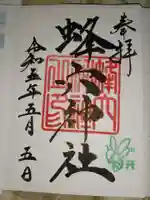 奉拝
蜂穴神社
令和五年五月五日